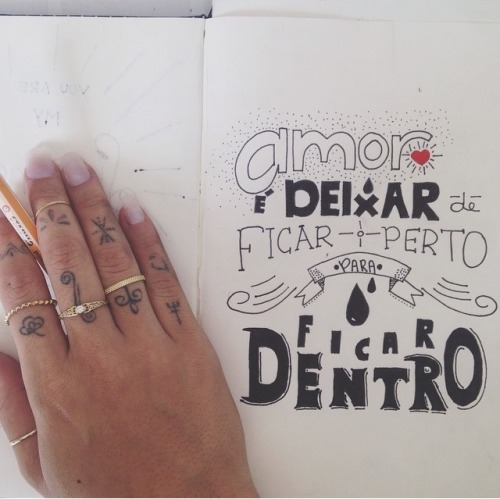 YOU ARE
MY
amor
É DEIXAR de
FICAR PERTO
PARA
FICAR
DENTRO